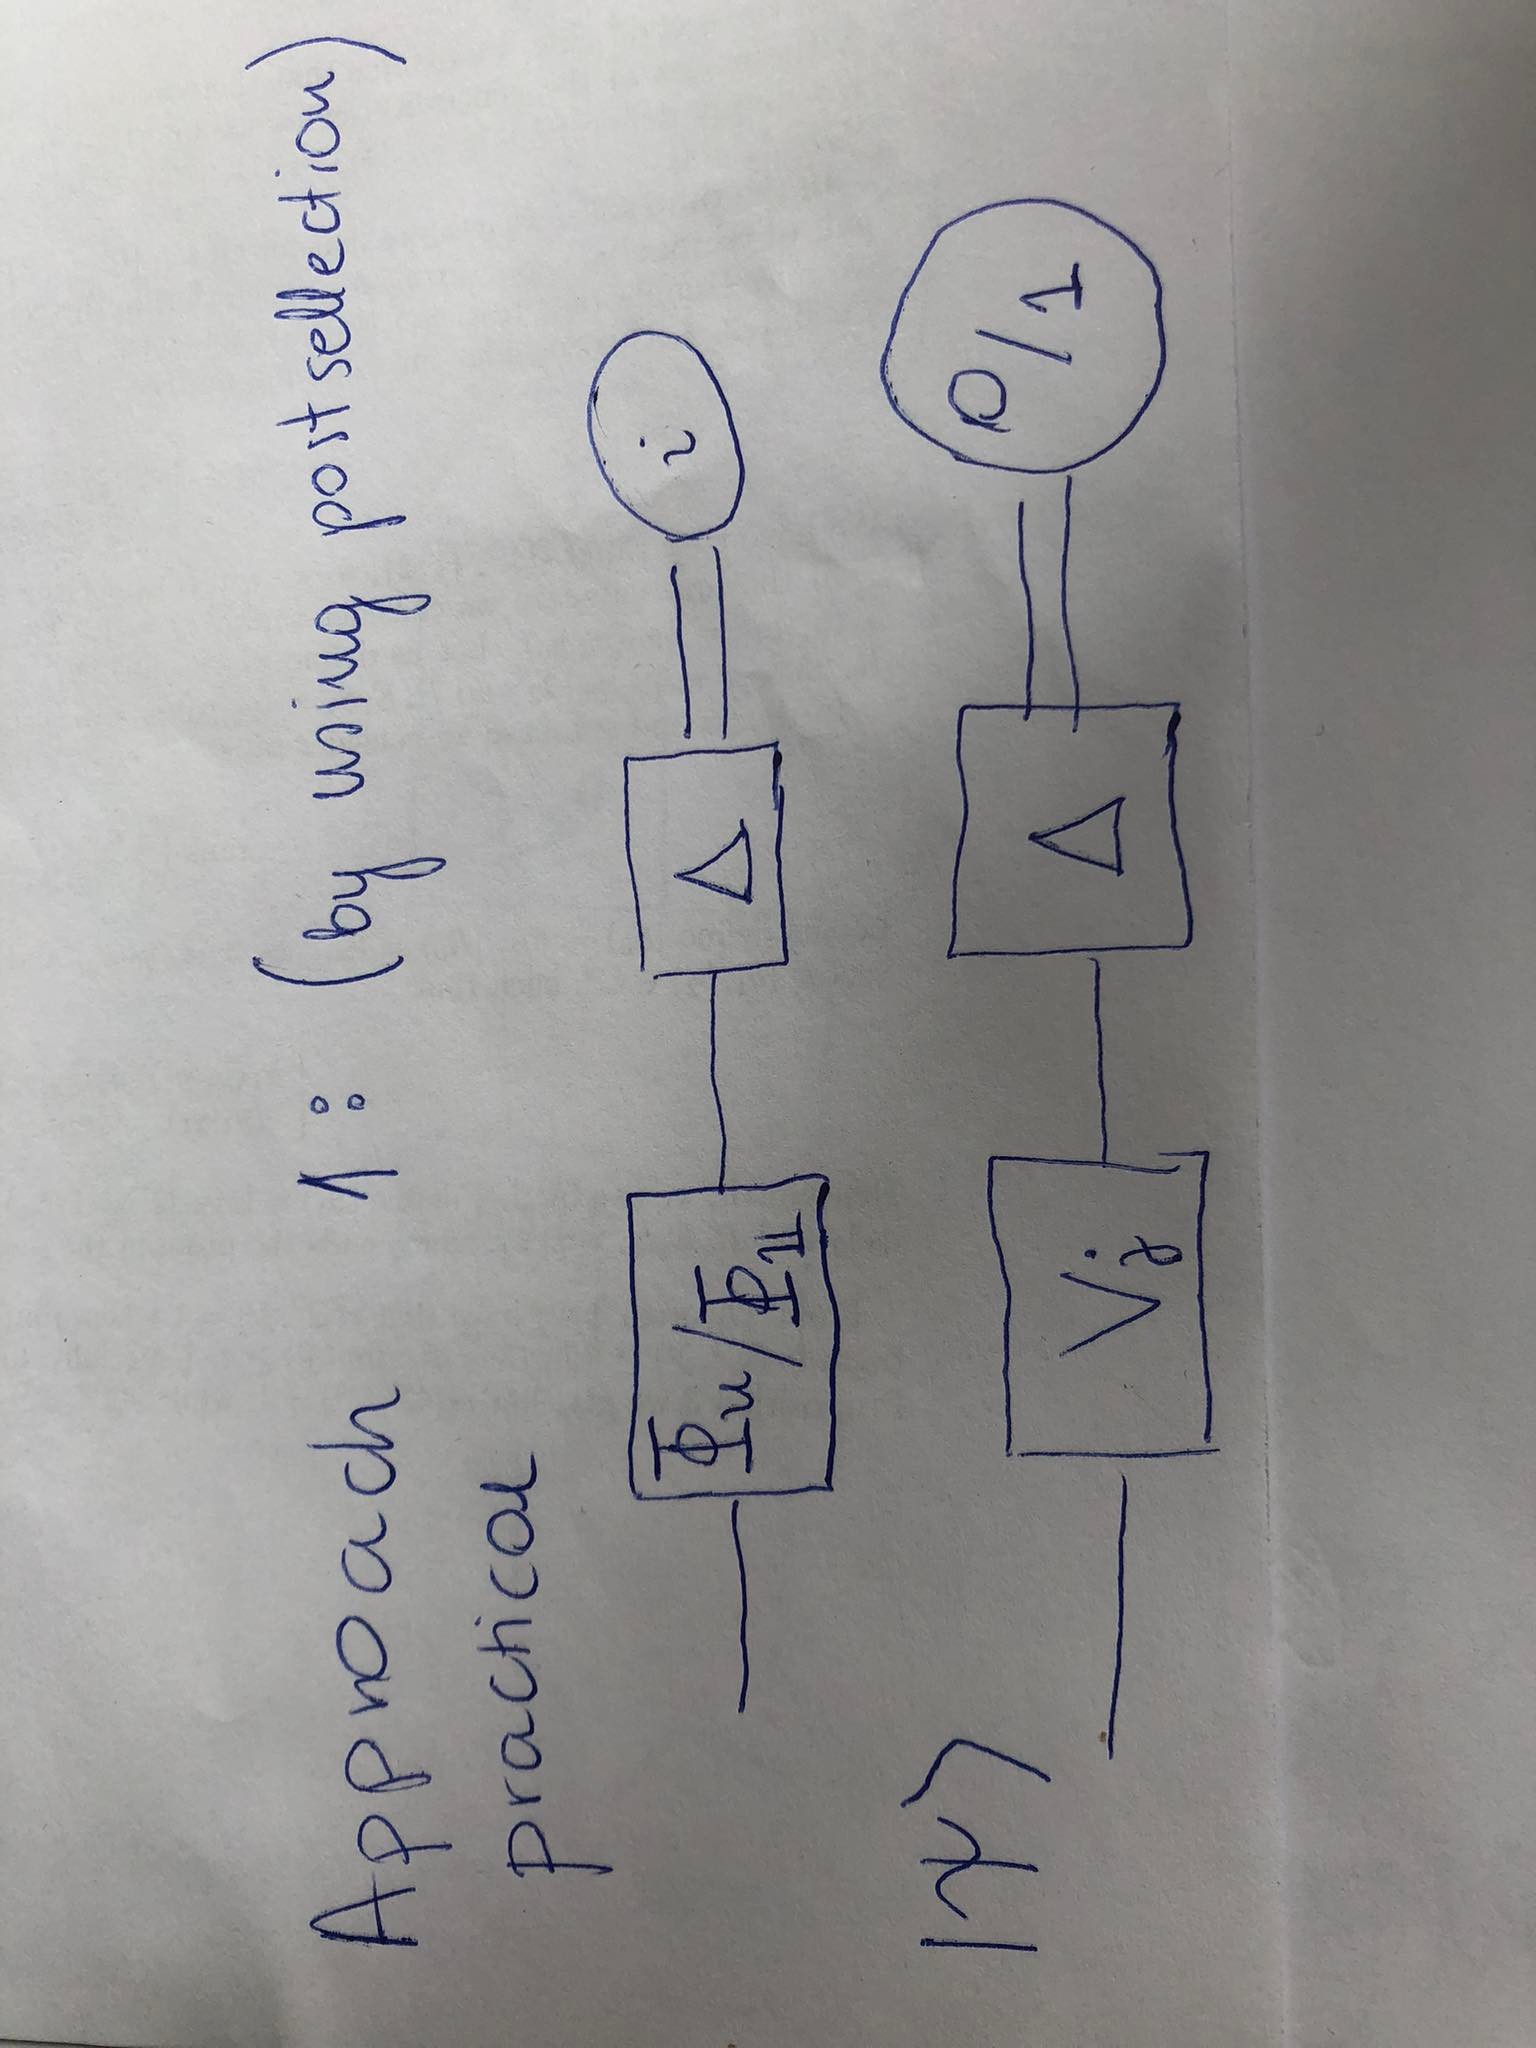 Approach 1: (by using postsellection)
practical
Φu/Φ1 Δ i
|ψ⟩ Vj Δ 0/1